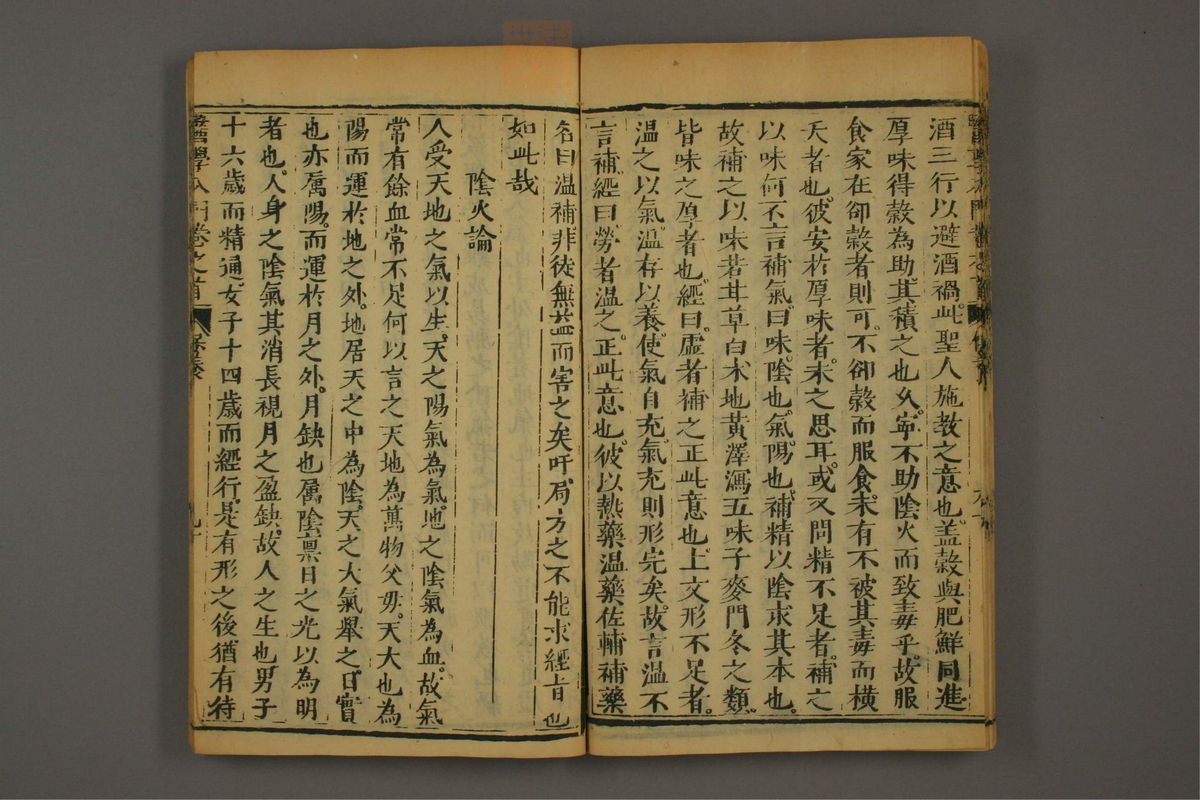 酒三行以避酒禍。此聖人施教之意也。蓋穀與肥鮮同進
厚味得穀為助。其積之也久。寧不助陰火而致毒乎。故服
食家在卻穀者則可。不卻穀而服食。未有不被其毒而橫
夭者也。彼安於厚味者。未之思耳。或又問精不足者。補之
以味。何不言補氣。曰味。陰也。氣。陽也。補精以陰。求其本也。
故補之以味。若甘草白术地黃澤瀉五味子麥門冬之類。
皆味之厚者也。經曰。虛者補之。正此意也。上文形不足者。
溫之以氣。溫存以養。使氣自充。氣充則形完矣。故言溫不
言補。經曰。勞者溫之。正此意也。彼以熱藥溫藥佐輔補藥
名曰溫補。非徒無益而害之矣。吁。局方之不能求經旨也
如此哉
陰火論
人受天地之氣以生。天之陽氣為氣。地之陰氣為血。故氣
常有餘。血常不足。何以言之。天地為萬物父毋。天大也。為
陽。而運於地之外。地居天之中為陰。天之大氣舉之。日實
也。亦属陽。而運於月之外。月缺也。属陰。稟日之光以為明
者也。人身之陰氣。其消長視月之盈缺。故人之生也。男子
十六歲而精通。女子十四歲而經行。是有形之後。猶有待
醫學入門卷之首